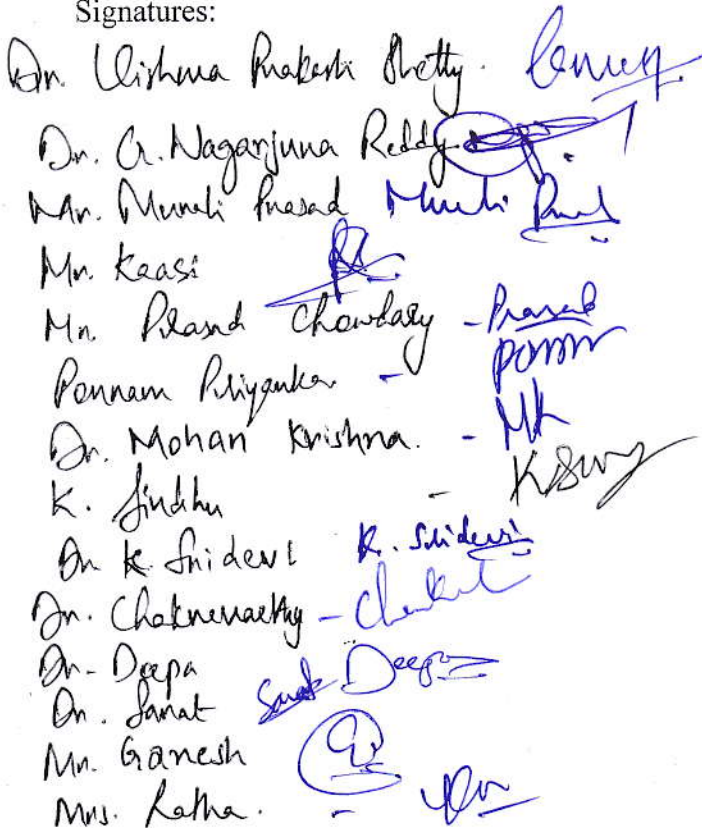 Signatures:
Dr. Vishwa Prakash Shetty.
Dr. G. Nagarjuna Reddy
Mr. Murali Prasad Murali
Mr. Kaasi
Mr. Prasad Chowdary - Prasad
Ponnam Priyanka -
Dr. Mohan Krishna. - MK
K. Sindhu -
Dr K. Sridevi K. Sridevi
Dr. Chakravarthy -
Dr- Deepa Deepa
Dr. Sanat Sanat
Mr. Ganesh
Mrs. Latha. -